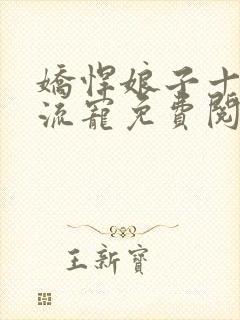 嬌悍娘子十
流寵免費閱
王新寶